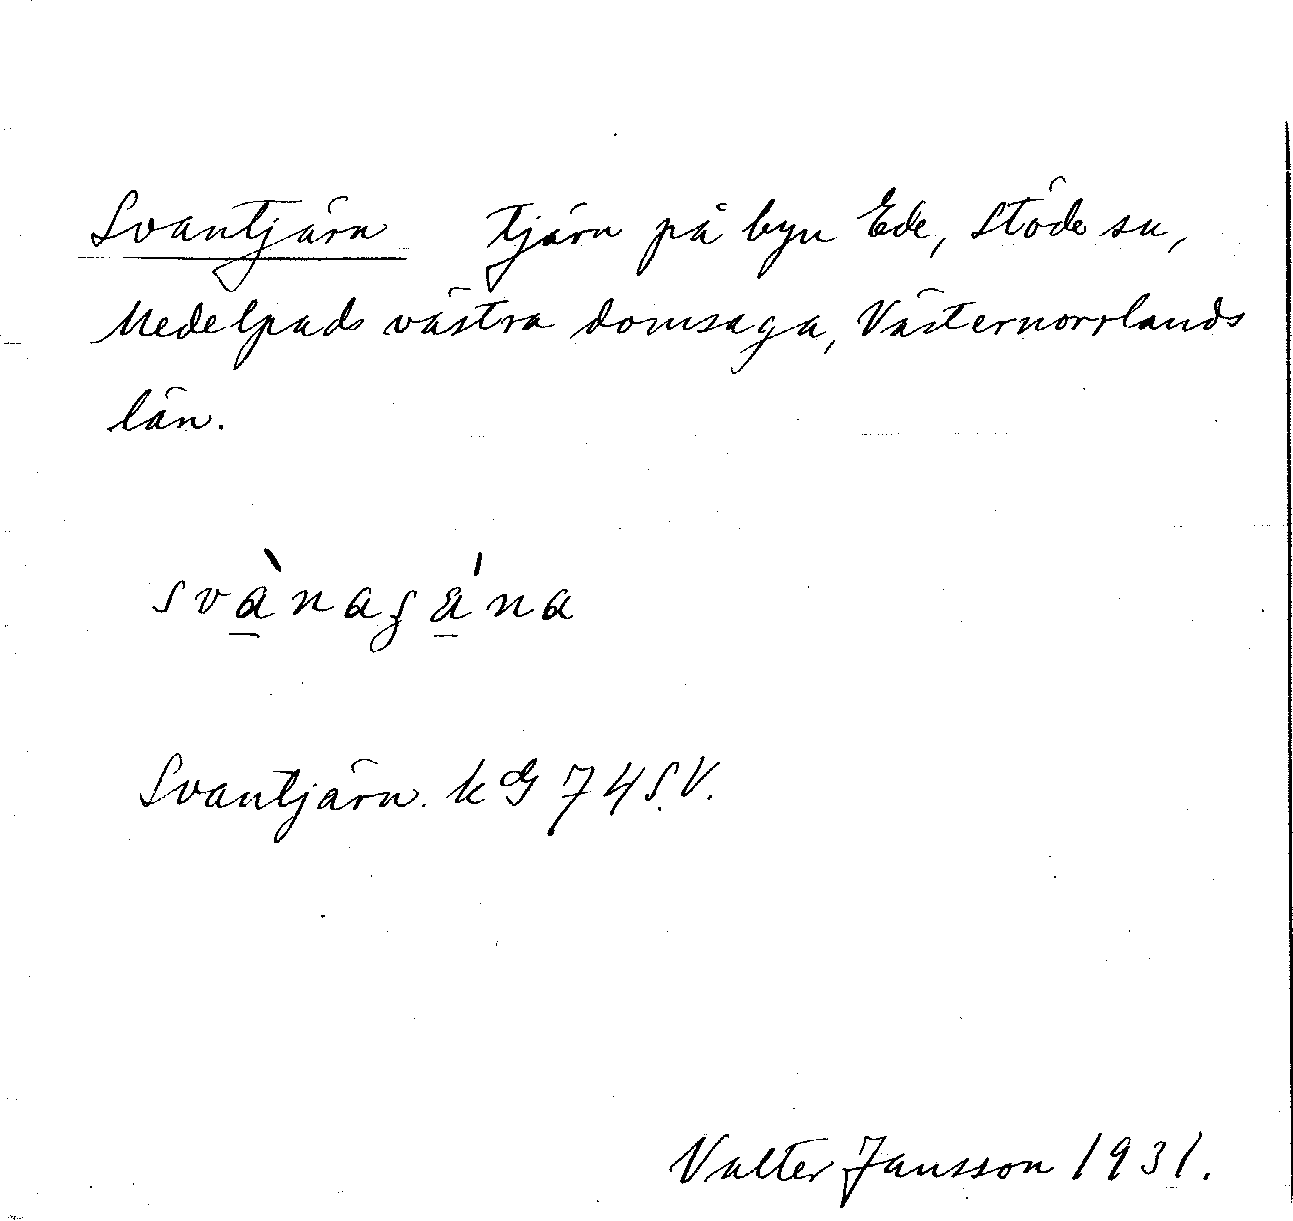 Svantjärn Tjärn på byn Ede, Stöde sn,
Medelpads västra domsaga, Västernorrlands
län.
svànaʂána
Svantjärn. kG 74 S.V.
Valter Jansson 1931.